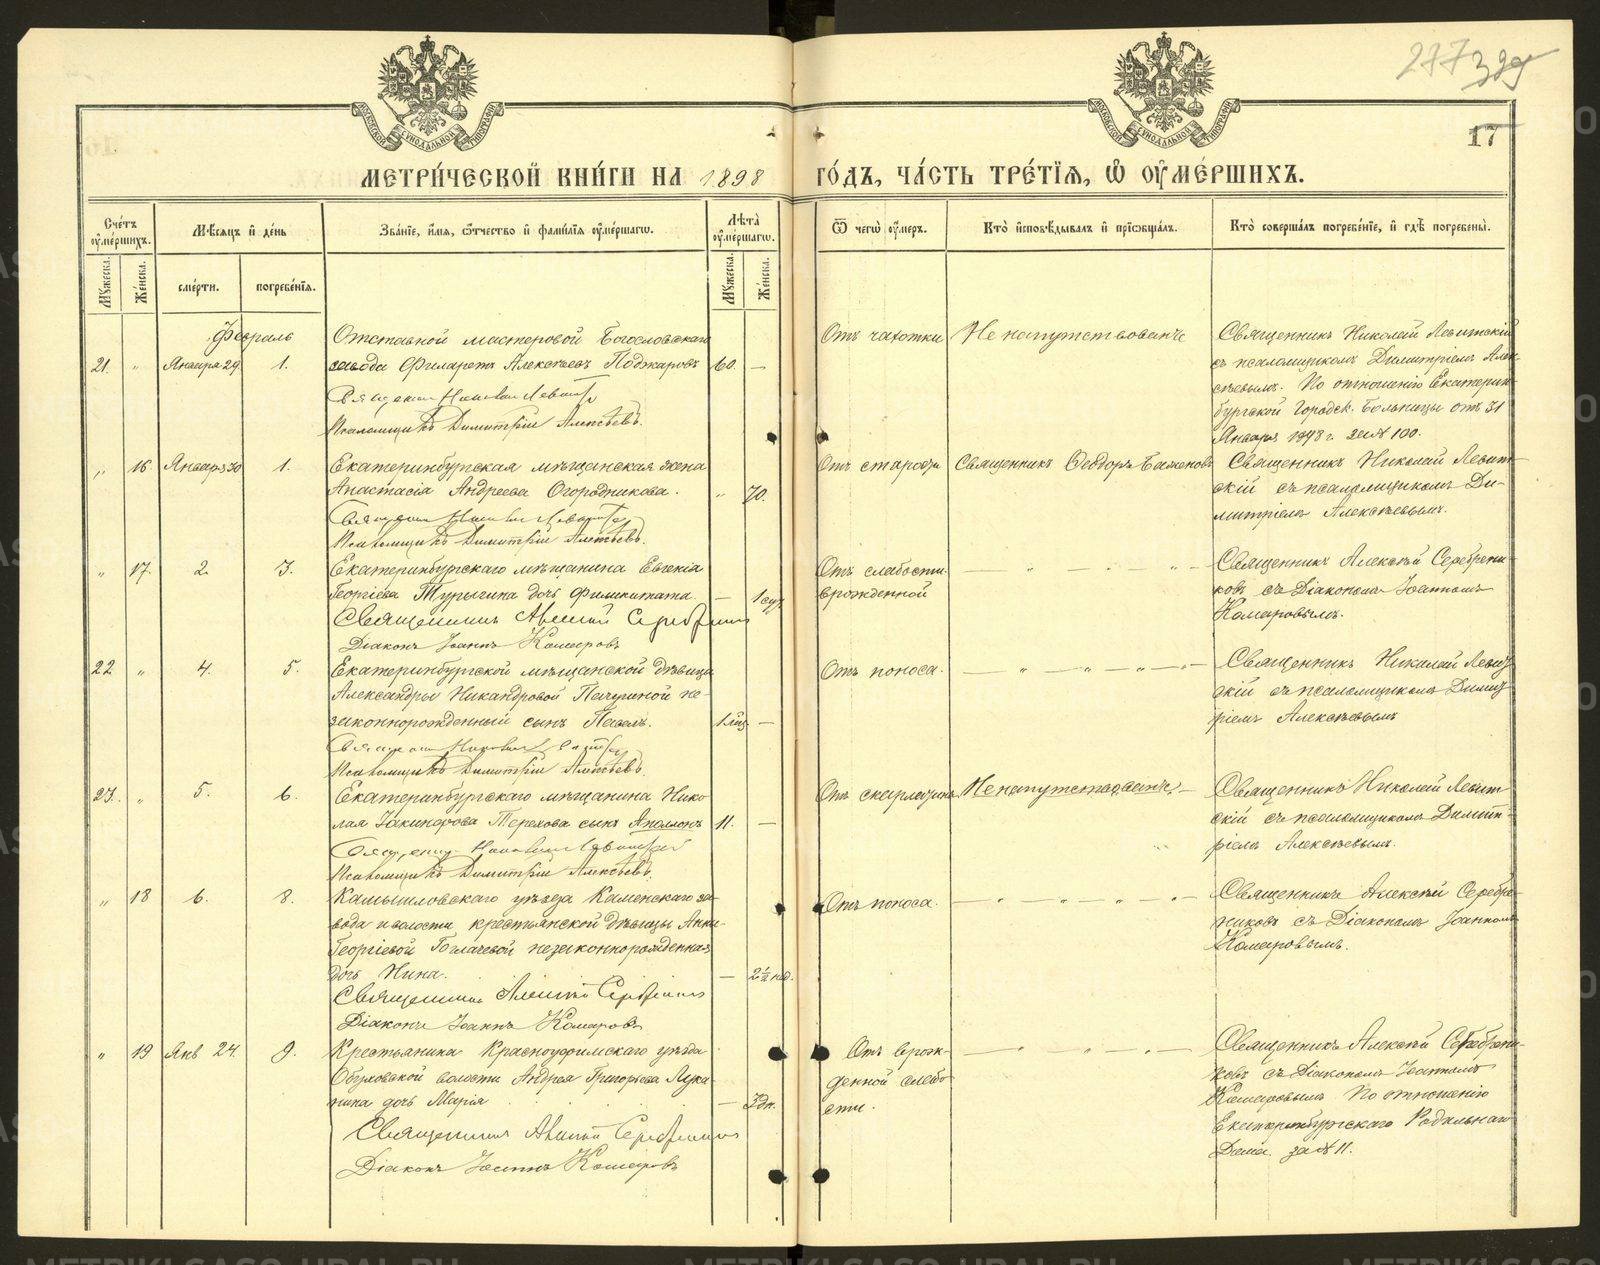 277 329
17
МОСКОВСКОЙ СѴНОДАЛЬНОЙ ТИПОГРАФІИ
МОСКОВСКОЙ СѴНОДАЛЬНОЙ ТИПОГРАФІИ
МЕТРИ́ЧЕСКОЙ КНИ́ГИ НА 1898 ГО́ДЪ, ЧА́СТЬ ТРЕ́ТІѦ, Ѡ҆ ОУ҆МЕ́РШИХЪ.
Сче́тъ оу҆ме́ршихъ.
Мѣ́сѧцъ и҆ де́нь
Зва́нїе, и҆́мѧ, ѻ҆́тчество и҆ фами́лїѧ оу҆ме́ршагѡ.
Лѣ́та оу҆ме́ршагѡ.
Ѿ чегѡ̀ оу҆́меръ.
Кто̀ и҆сповѣ́дывалъ и҆ прїѡбща́лъ.
Кто̀ соверша́лъ погребе́нїе, и҆ гдѣ̀ погребены̀.
Мꙋ́жеска.
Же́нска.
сме́рти.
погребе́нїѧ.
Мꙋ́жеска.
Же́нска.
Февраль
21. " Января 29. 1.
Отставной мастеровой Богословскаго
завода Филаретъ Алексѣевъ Поджаровъ 60. —
Священникъ Николай Левитскій
Псаломщикъ Димитрій Алексѣевъ.
Отъ чахотки
Не напутствованъ
Священникъ Николай Левитскій
съ псаломщикомъ Димитріемъ Алек-
сѣевымъ. По отношенію Екатерин-
бургской Городск. Больницы отъ 31
Января 1898 г. за № 100.
" 16. Января 30 1.
Екатеринбургская мѣщанская жена
Анастасія Андреева Огородникова. " 70.
Священникъ Николай Левитскій
Псаломщикъ Димитрій Алексѣевъ.
Отъ старости
Священникъ Ѳеодоръ Баженовъ
Священникъ Николай Левит-
скій съ псаломщикомъ Ди-
митріемъ Алексѣевымъ.
" 17. 2. 3.
Екатеринбургскаго мѣщанина Евгенія
Георгіева Турыгина дочь Филикитата. — 1 сут.
Священникъ Алексій Серебренниковъ
Діаконъ Іоаннъ Комаровъ
Отъ слабости
врожденной
— " — " —
Священникъ Алексѣй Серебрени-
ковъ съ Діакономъ Іоанномъ
Комаровымъ.
22 " 4. 5.
Екатеринбургской мѣщанской дѣвицы
Александры Никандровой Пичугиной не-
законнорожденный сынъ Павелъ. —
Священникъ Николай Левитскій
Псаломщикъ Димитрій Алексѣевъ.
Отъ поноса.
— " — " — " — " —
Священникъ Николай Левит-
скій съ псаломщикомъ Димит-
ріемъ Алексѣевымъ
23. " 5. 6.
Екатеринбургскаго мѣщанина Нико-
лая Іакинфова Терехова сынъ Аполлонъ 11. —
Священникъ Николай Левитскій
Псаломщикъ Димитрій Алексѣевъ.
Отъ скарлатины
Не напутствованъ. —
Священникъ Николай Левит-
скій съ псаломщикомъ Димит-
ріемъ Алексѣевымъ.
" 18 6. 8.
Камышловскаго уѣзда Каменскаго за-
вода и волости крестьянской дѣвицы Анны
Георгіевой незаконнорожденная
дочь Нина. — 2½ нед.
Священникъ Алексій Серебренниковъ
Діаконъ Іоаннъ Комаровъ
Отъ поноса.
— " — " — " — " —
Священникъ Алексѣй Серебре-
никовъ съ Діакономъ Іоанномъ
Комаровымъ.
" 19 Янв 24. 9.
Крестьянина Красноуфимскаго уѣзда
волости Андрея Григорьева Лука-
нина дочь Марія — 3 дн.
Священникъ Алексій Серебренниковъ
Діаконъ Іоаннъ Комаровъ
Отъ врож-
денной слабо-
сти.
— " — " —
Священникъ Алексѣй Серебрени-
ковъ съ Діакономъ Іоанномъ
Комаровымъ По отношенію
Екатеринбургскаго Родильнаго
Дома за № 11.